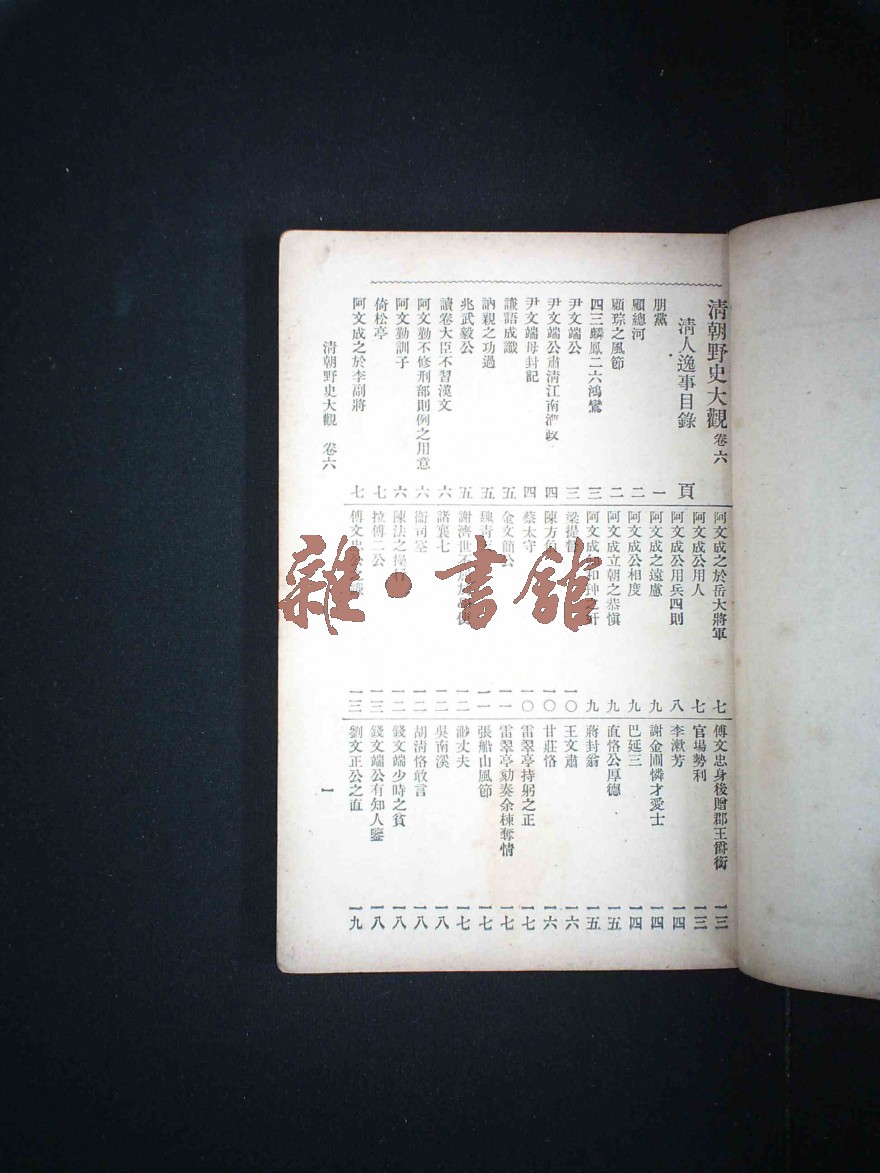 清朝野史大觀 卷六
清人逸事目錄 頁
朋黨 一
顧總河 二
顧琮之風節 二
四三鱗鳳二六鴻鸞 三
尹文端公 三
尹文端公肅清江南漕政 四
尹文端母封記 四
讖語成讖 五
訥親之功過 五
兆武毅公 五
讀卷大臣不習漢文 六
阿文勤不修刑部則例之用意 六
阿文勤訓子 六
倚松亭 七
阿文成之於李副將 七
阿文成之於岳大將軍 七
阿文成公用人 七
阿文成公用兵四則 八
阿文成之遠慮 九
阿文成公相度 九
阿文成立朝之恭慎 九
阿文成 和珅之奸 九
梁提督 一〇
陳方 一〇
蔡太守 一〇
金文簡公 一一
魏青 一一
謝濟世不 一二
諸襄七 一二
衞司空 一二
陳法之操行 一二
拉傅二公 一三
傅文忠 一三
傅文忠身後贈郡王爵銜 一三
官場勢利 一三
李漱芳 一四
謝金圃憐才愛士 一四
巴延三 一四
直恪公厚德 一五
蔣封翁 一五
王文肅 一六
甘莊恪 一六
雷翠亭持躬之正 一七
雷翠亭劾奏余棟奪情 一七
張船山風節 一七
渺丈夫 一七
吳南溪 一八
胡清恪敢言 一八
錢文端少時之貧 一八
錢文端公有知人鑒 一八
劉文正公之直 一九
清朝野史大觀 卷六
一
雜·書館